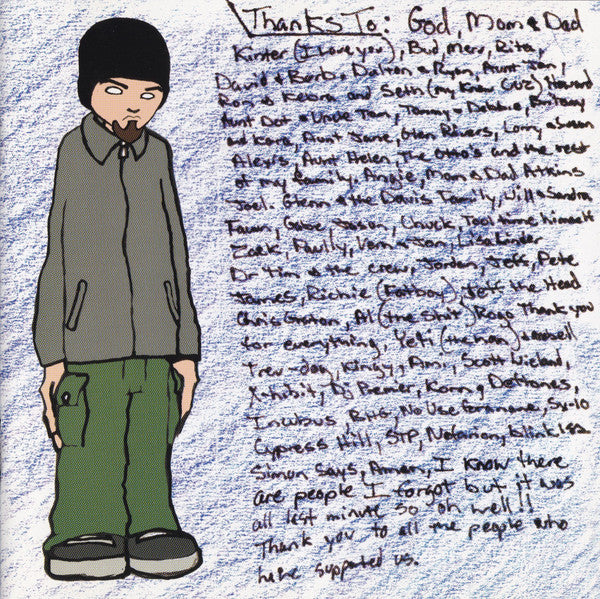 Thanks To: God, Mom & Dad
(I love you), Bud, Merv, Rita,
David & Barb, Dalton & Ryan, Aunt Jan,
Ron & and Seth (my Cuz) Howard
Aunt Dot & Uncle Tom, Tammy & Debbie, Brittany
and Kara, Aunt Jane, Glen Rivers, Lorry &
Alexis, Aunt Helen, The Otto's and the rest
of my family, Angie, Mom & Dad Atkins
Joel. Glenn & the Davis Family, Will & Sandra
Fawn, Gabe, Jason, Chuck, himself
Zack, Paully, Vern & Jon, Lisa
Dr Tim & the crew, Jordan, Jeff, Pete
James, Richie (Fatboy), Jeff the Head
Chris Al (the Shit) Thank you
for everything, Yeti &
Trev-dog, Kingy, Ami, Scott
X-hibit, Dj Premier, Korn, Deftones,
Incubus, No Use for a name, Sx-10
Cypress Hill, STP, blink 182
Simon Says, I know there
are people I forgot but it was
all last minute so oh well!!
Thank you to all the people who
have supported us.